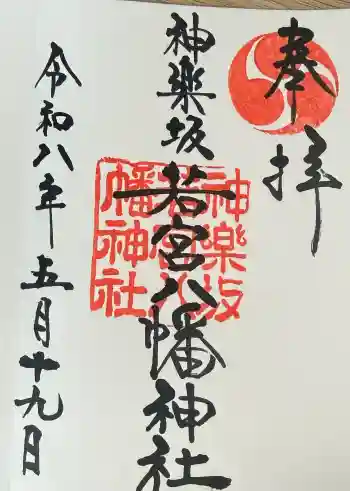 奉拝
神楽坂
若宮八幡神社
神楽坂
若宮八
幡神社
令和八年五月十九日